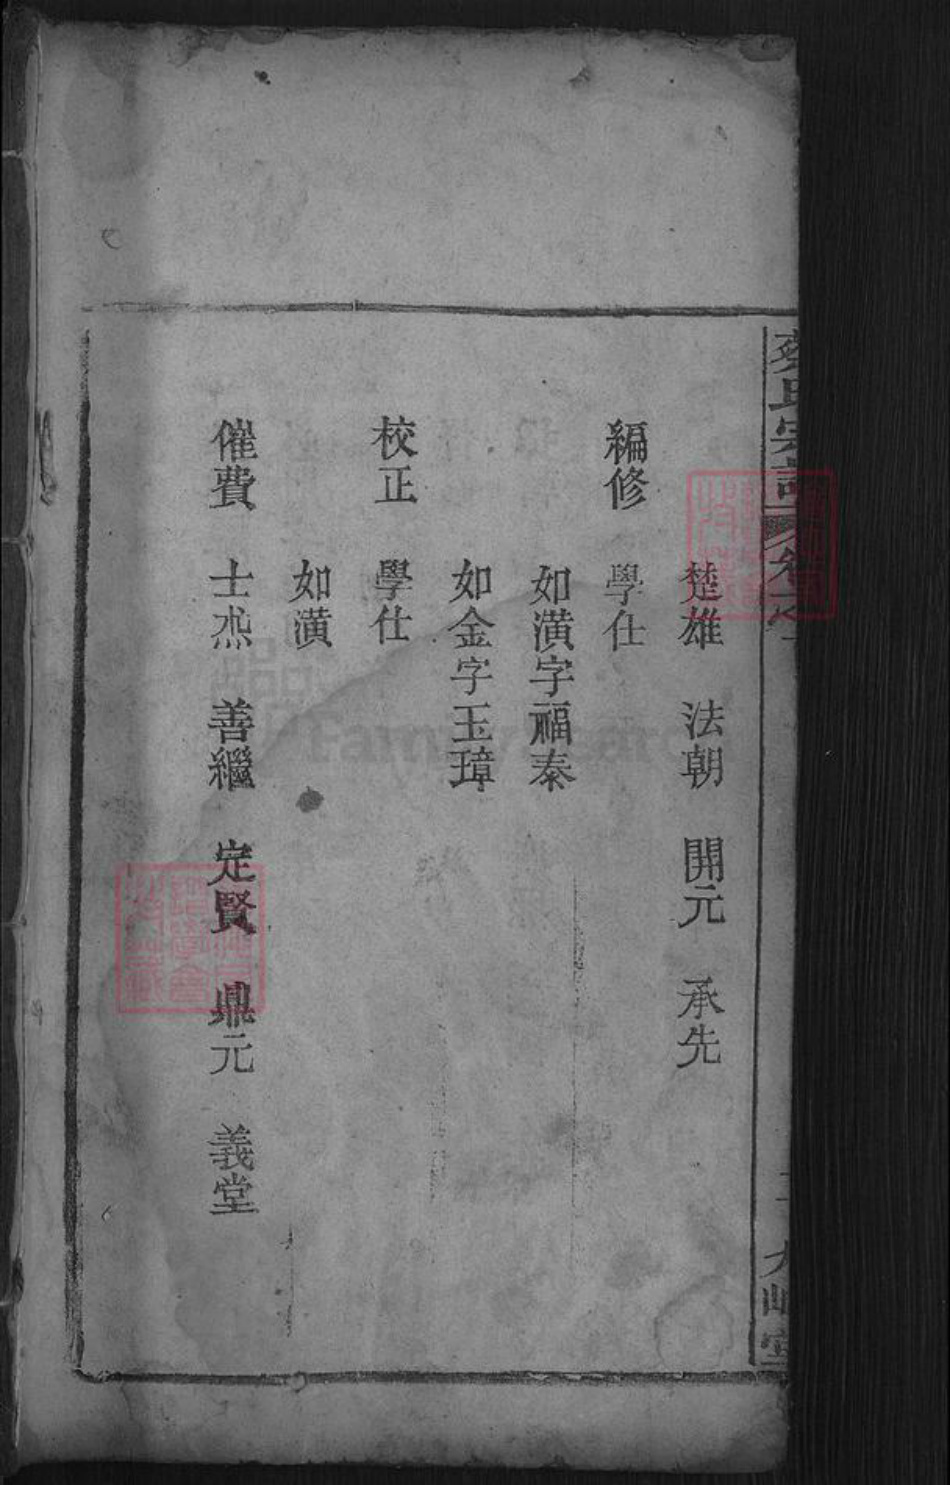 氏宗譜
楚雄 法朝 開元 承先
編修 學仕
如潢字福秦
如金字玉璋
校正 學仕
如潢
催費 士烝 善繼 定賢 鼎元 義堂